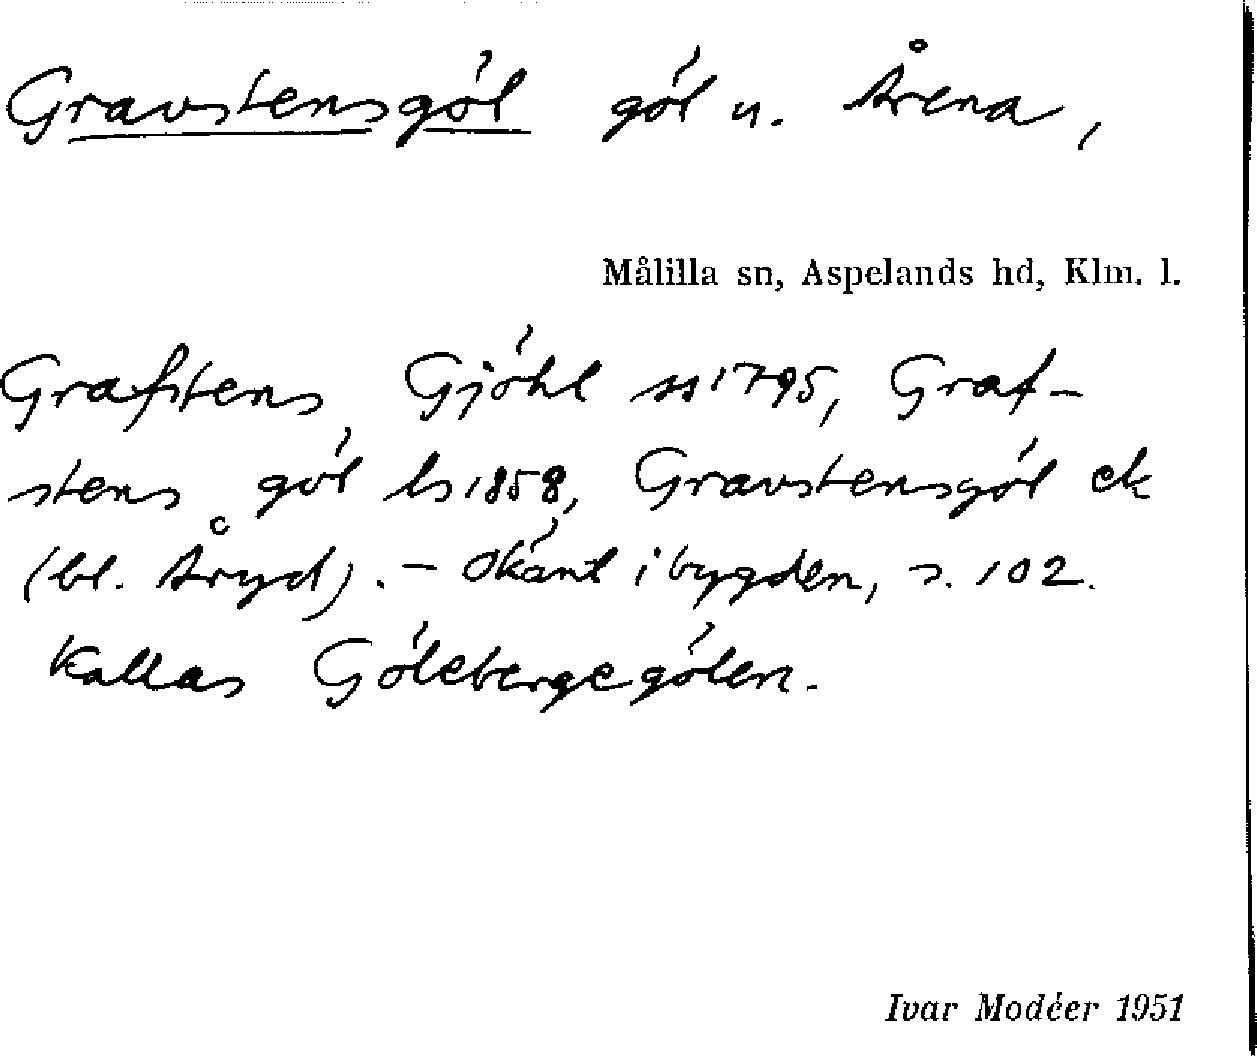 Gravstensgöl göl u. Årena,
Målilla sn, Aspelands hd, Klm. l.
Grafstens Gjöhl ss 1795, Graf-
stens göl ls 1858, Gravstensgöl ek
(bl. Åryd). – Okänt i bygden, s. 102.
Kallas Gölebergegölen.
Ivar Modéer 1951